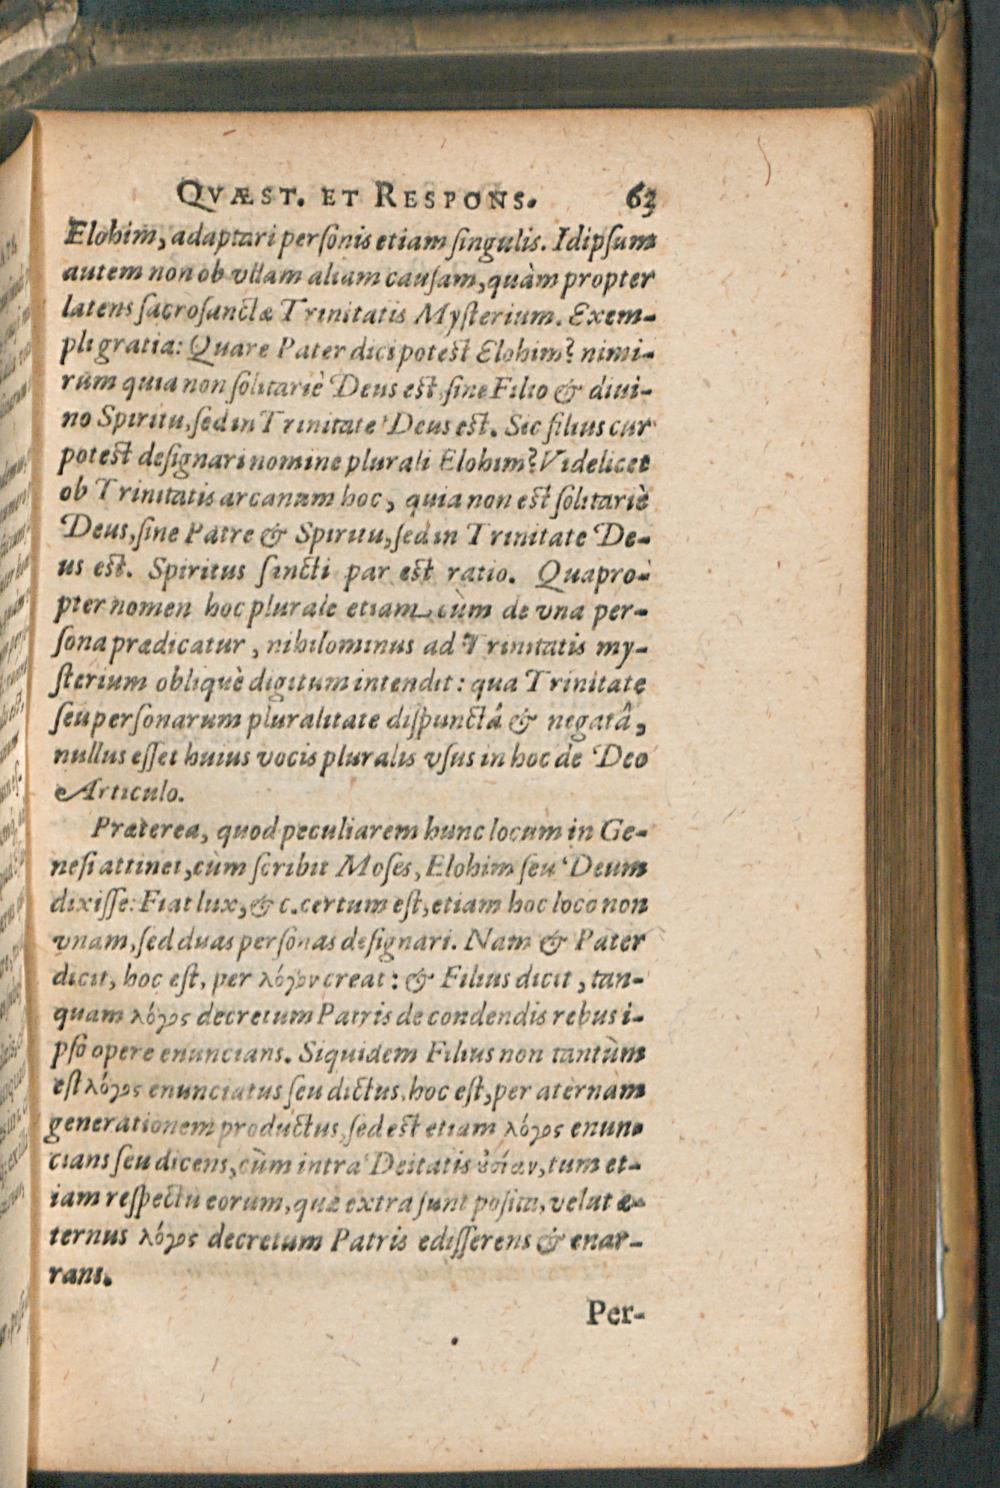 QVÆST. ET RESPONS. 63
Elohim, adaptari personis etiam singulis. Idipsum
autem non ob vllam aliam causam, quàm propter
latens sacrosanctæ Trinitatis Mysterium. Exem-
pli gratia: Quare Pater dici potest Elohim? nimi-
rùm quia non solitariè Deus est, sine Filio & diui-
no Spiritu, sed in Trinitate Deus est. Sic filius cur
potest designari nomine plurali Elohim? Videlicet
ob Trinitatis arcanum hoc, quia non est solitariè
Deus, sine Patre & Spiritu, sed in Trinitate De-
us est. Spiritus sancti par est ratio. Quapro-
pter nomen hoc plurale etiam cùm de vna per-
sona prædicatur, nihilominus ad Trinitatis my-
sterium obliquè digitum intendit: qua Trinitate
seu personarum pluralitate dispunctâ & negatâ,
nullus esset huius vocis pluralis vsus in hoc de Deo
Articulo.
Præterea, quod peculiarem hunc locum in Ge-
nesi attinet, cùm scribit Moses, Elohim seu Deum
dixisse: Fiat lux, & c. certum est, etiam hoc loco non
vnam, sed duas personas designari. Nam & Pater
dicit, hoc est, per λόγον creat: & Filius dicit, tan-
quam λόγος decretum Patris de condendis rebus i-
pso opere enuncians. Siquidem Filius non tantùm
est λόγος enunciatus seu dictus, hoc est, per æternam
generationem productus, sed est etiam λόγος enun-
cians seu dicens, cùm intra Deitatis οὐσίαν, tum et-
iam respectu eorum, quæ extra sunt posita, velut æ-
ternus λόγος decretum Patris edisserens & enar-
rans.
Per-